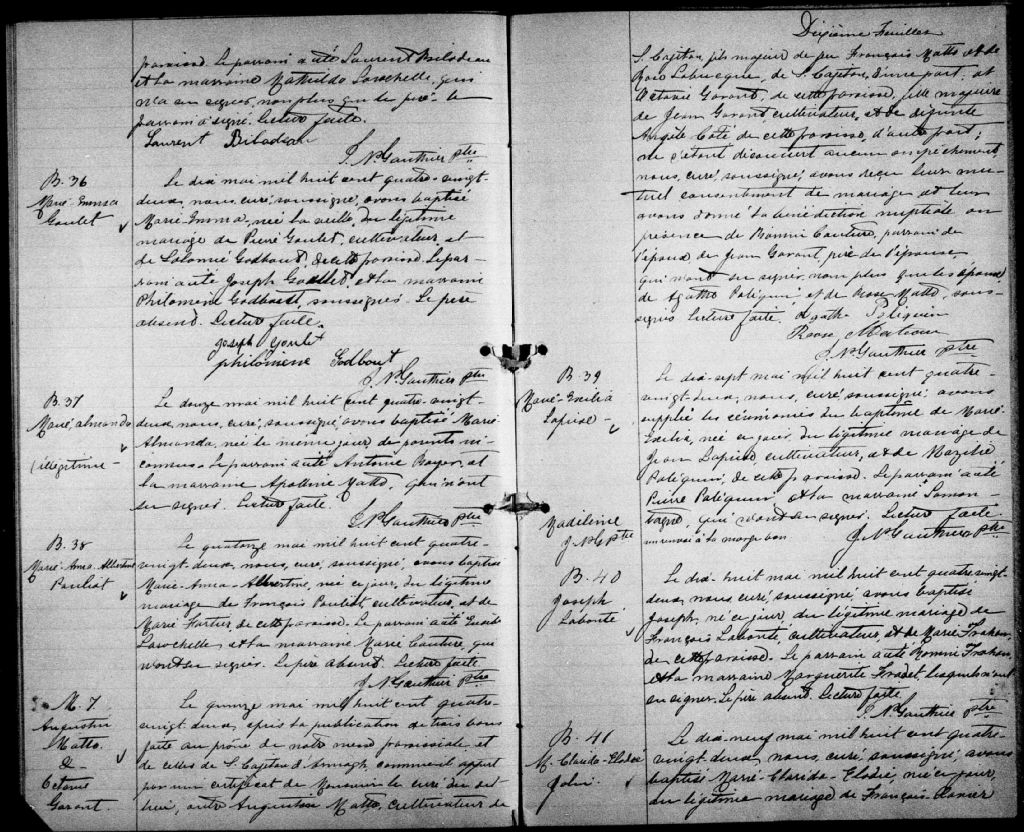 paroisse. Le parrain a été Laurent Bilodeau
et la marraine Mathilde Larochelle, qui
n'a su signer, non plus que le père. Le
parrain a signé. Lecture faite.
Laurent Bilodeau
J. N. Gauthier Ptre
B. 36
Marie-Emma
Goulet
Le dix mai mil huit cent quatre-vingt-
deux, nous, curé, soussigné, avons baptisé
Marie-Emma, née la veille, du légitime
mariage de Pierre Goulet, cultivateur, et
de Salomé Godbout, de cette paroisse. Le par-
rain a été Joseph Goulet, et la marraine
Philomène Godbout, soussignés. Le père
absent. Lecture faite.
Joseph Goulet
philomene Godbout
J. N. Gauthier Ptre
B. 37
Marie almanda
(illégitime -
Le douze mai mil huit cent quatre-vingt-
deux, nous, curé, soussigné, avons baptisé Marie
Almanda, née le même jour, de parents in-
connus. Le parrain a été Antoine Royer, et
la marraine Apolline Matte, qui n'ont
su signer. Lecture faite.
J. N. Gauthier Ptre
B. 38
Marie-Anna-Albertine
Pouliot
Le quatorze mai mil huit cent quatre-
vingt-deux, nous, curé, soussigné, avons baptisé
Marie-Anna-Albertine, née ce jour, du légitime
mariage de François Pouliot, cultivateur, et de
Marie Fortier de cette paroisse. Le parrain a été
Larochelle et la marraine Marie Couture, qui
n'ont su signer. Le père absent. Lecture faite
J. N. Gauthier Ptre
M. 7
Augustin
Matte
&
Octavie
Garant
Le quinze mai mil huit cent quatre-
vingt-deux, après la publication de trois bans
faite au prône de notre messe paroissiale et
de celles de S. Cajetan d'Armagh comme il appert
par un certificat de Monsieur le curé du dit
lieu, entre Augustin Matte, cultivateur de
Dixième Feuillet
S. Cajetan, fils majeur de feu François Matte et de
Rose Labrecque, de S. Cajetan, d'une part, et
Octavie Garant, de cette paroisse, fille majeure
de Jean Garant, cultivateur, et de défunte
Angèle Coté de cette paroisse, d'autre part;
ne s'étant découvert aucun empêchement,
nous, curé, soussigné, avons reçu leur mu-
tuel consentement de mariage et leur
avons donné la bénédiction nuptiale en
présence de Couture, parrain de
l'époux, de Jean Garant, père de l'épouse
qui n'ont su signer, non plus que les époux,
de Agathe Poliquin et de Rose Matte, sous-
signés. Lecture faite. Agathe Poliquin
Rose
J. N. Gauthier Ptre
B. 39
Marie-
Lapierre
Madeleine
J N G Ptre
Le dix-sept mai mil huit cent quatre-
vingt-deux, nous, curé, soussigné, avons
supplée les cérémonies du baptême de Marie-
née ce jour, du légitime mariage de
Jean cultivateur, et de
Poliquin, de cette paroisse. Le parrain a été
Pierre Poliquin et la marraine
qui n'ont su signer. Lecture faite
un renvoi à la marge bon
J. N. Gauthier Ptre
B. 40
Joseph
Labonté
Le dix-huit mai mil huit cent quatre vingt-
deux, nous, curé, soussigné, avons baptisé
Joseph, né ce jour, du légitime mariage de
François Labonté, cultivateur, et de Marie
de cette paroisse. Le parrain a été
et la marraine Marguerite Fradet, lesquels n'ont
su signer. Le père absent. Lecture faite.
J. N. Gauthier Ptre
B. 41
M.-Clarida-Elodie
Le dix-neuf mai mil huit cent quatre-
vingt-deux, nous, curé, soussigné, avons
baptisé Marie-Clarida-Elodie, née ce jour,
du légitime mariage de François-Xavier